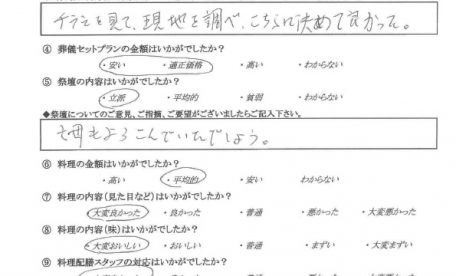 チラシを見て、現地を調べ、こちらに決めて良かった。
④ 葬儀セットプランの金額はいかがでしたか？
・安い ・適正価格 ・高い ・わからない
⑤ 祭壇の内容はいかがでしたか？
・立派 ・平均的 ・貧弱 ・わからない
◆祭壇についてのご意見、ご指摘、ご要望がございましたらご記入下さい。
母もよろこんでいたでしょう。
⑥ 料理の金額はいかがでしたか？
・高い ・平均的 ・安い わからない
⑦ 料理の内容（見た目など）はいかがでしたか？
・大変良かった ・良かった ・普通 ・悪かった ・大変悪かった
⑧ 料理の内容（味）はいかがでしたか？
・大変おいしい ・おいしい ・普通 ・まずい ・大変まずい
⑨ 料理配膳スタッフの対応はいかがでしたか？